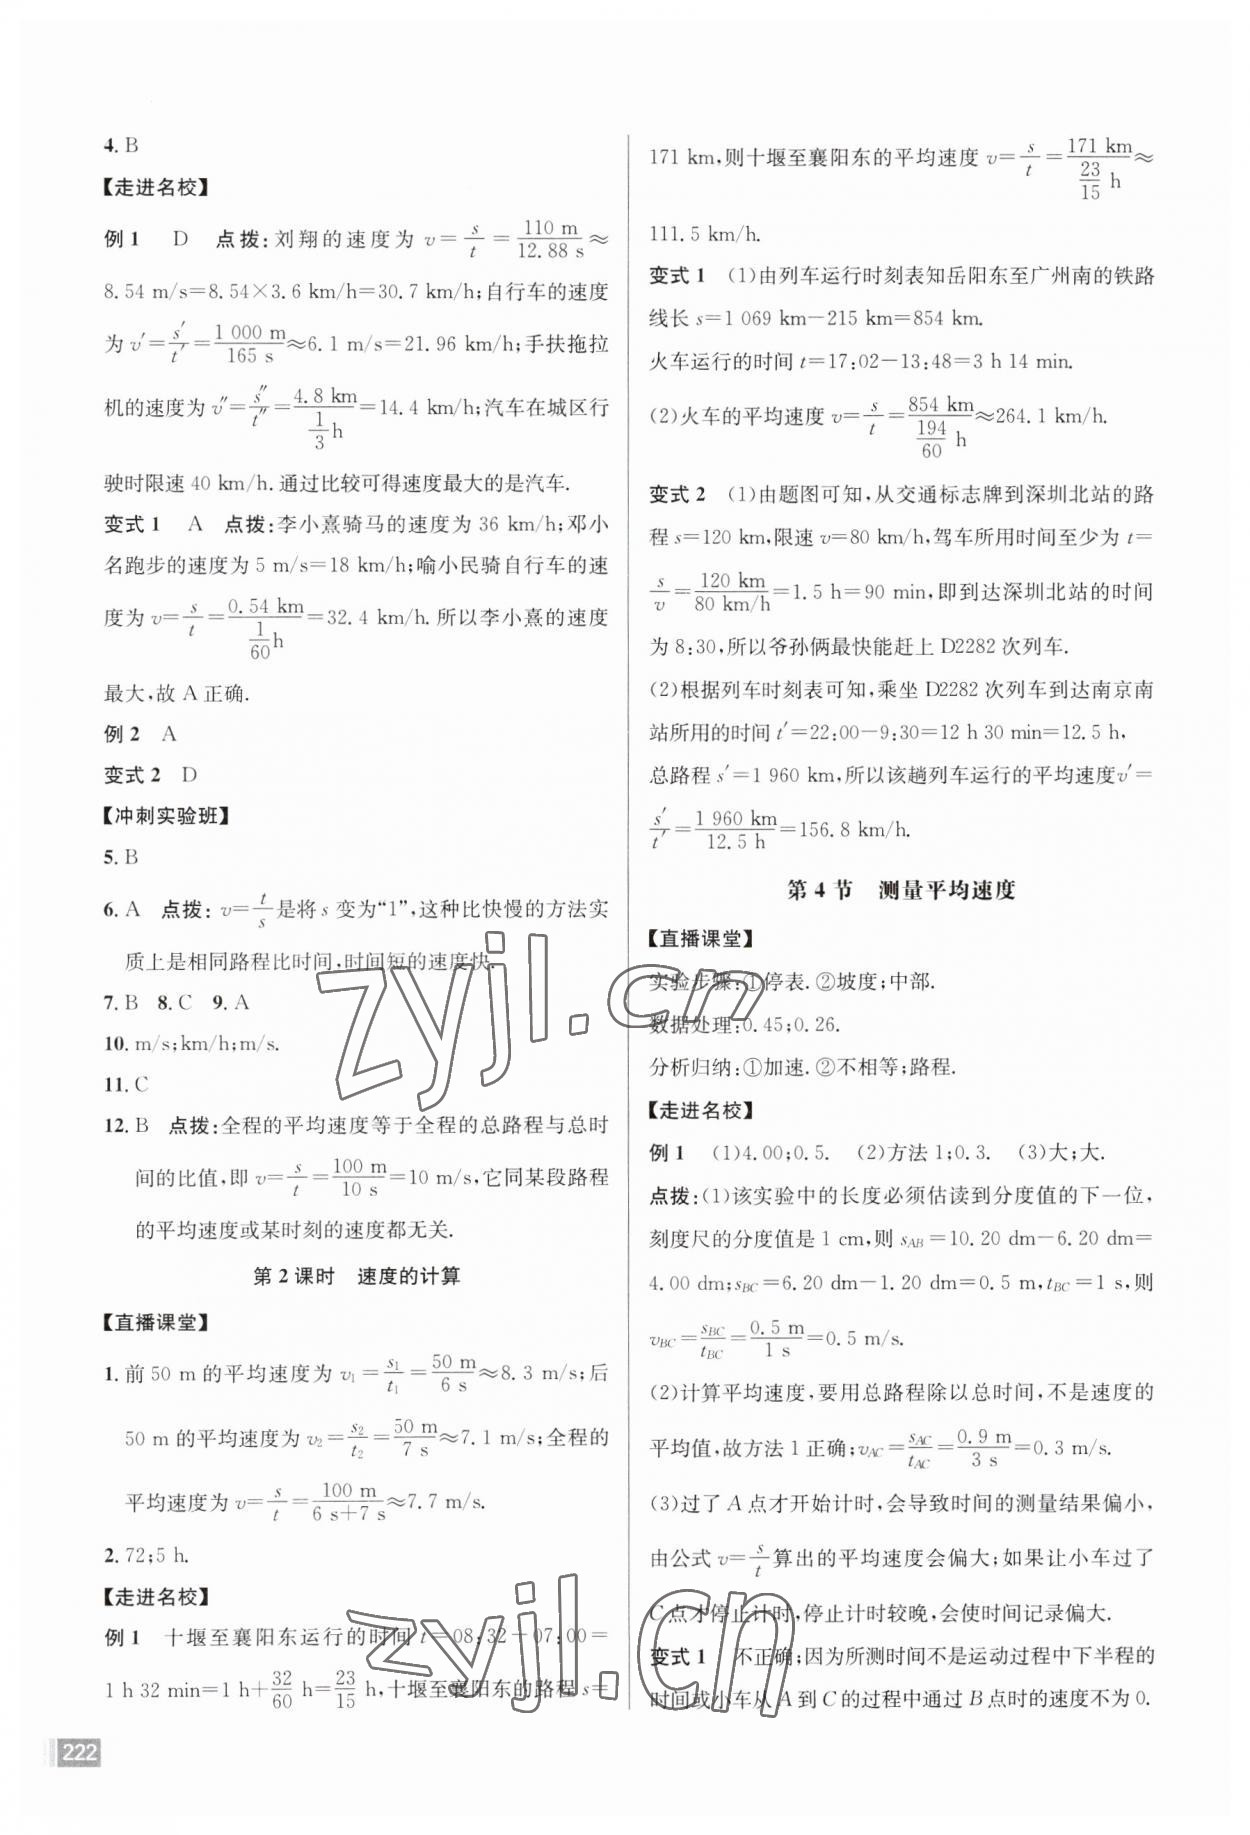 4. B
【走进名校】
例 1 D 点拨:刘翔的速度为 v=s/t=110 m/12.88 s≈
8.54 m/s=8.54×3.6 km/h=30.7 km/h;自行车的速度
为 v′=s′/t′=1 000 m/165 s≈6.1 m/s=21.96 km/h;手扶拖拉
机的速度为 v″=s″/t″=4.8 km/(1/3 h)=14.4 km/h;汽车在城区行
驶时限速 40 km/h.通过比较可得速度最大的是汽车.
变式 1 A 点拨:李小熹骑马的速度为 36 km/h;邓小
名跑步的速度为 5 m/s=18 km/h;喻小民骑自行车的速
度为 v=s/t=0.54 km/(1/60 h)=32.4 km/h.所以李小熹的速度
最大,故 A 正确.
例 2 A
变式 2 D
【冲刺实验班】
5. B
6. A 点拨:v=t/s是将 s 变为“1”,这种比快慢的方法实
质上是相同路程比时间,时间短的速度快.
7. B 8. C 9. A
10. m/s;km/h;m/s.
11. C
12. B 点拨:全程的平均速度等于全程的总路程与总时
间的比值,即 v=s/t=100 m/10 s=10 m/s,它同某段路程
的平均速度或某时刻的速度都无关.
第 2 课时 速度的计算
【直播课堂】
1. 前 50 m 的平均速度为 v₁=s₁/t₁=50 m/6 s≈8.3 m/s;后
50 m 的平均速度为 v₂=s₂/t₂=50 m/7 s≈7.1 m/s;全程的
平均速度为 v=s/t=100 m/(6 s+7 s)≈7.7 m/s.
2. 72;5 h.
【走进名校】
例 1 十堰至襄阳东运行的时间 t=08:32-07:00=
1 h 32 min=1 h+32/60 h=23/15 h,十堰至襄阳东的路程 s=
222
171 km,则十堰至襄阳东的平均速度 v=s/t=171 km/(23/15 h)≈
111.5 km/h.
变式 1 (1)由列车运行时刻表知岳阳东至广州南的铁路
线长 s=1 069 km-215 km=854 km.
火车运行的时间 t=17:02-13:48=3 h 14 min.
(2)火车的平均速度 v=s/t=854 km/(194/60 h)≈264.1 km/h.
变式 2 (1)由题图可知,从交通标志牌到深圳北站的路
程 s=120 km,限速 v=80 km/h,驾车所用时间至少为 t=
s/v=120 km/80 km/h=1.5 h=90 min,即到达深圳北站的时间
为 8:30,所以爷孙俩最快能赶上 D2282 次列车.
(2)根据列车时刻表可知,乘坐 D2282 次列车到达南京南
站所用的时间 t′=22:00-9:30=12 h 30 min=12.5 h,
总路程 s′=1 960 km,所以该趟列车运行的平均速度v′=
s′/t′=1 960 km/12.5 h=156.8 km/h.
第 4 节 测量平均速度
【直播课堂】
实验步骤:①停表. ②坡度;中部.
数据处理:0.45;0.26.
分析归纳:①加速. ②不相等;路程.
【走进名校】
例 1 (1)4.00;0.5. (2)方法 1;0.3. (3)大;大.
点拨:(1)该实验中的长度必须估读到分度值的下一位,
刻度尺的分度值是 1 cm,则 s_AB=10.20 dm-6.20 dm=
4.00 dm;s_BC=6.20 dm-1.20 dm=0.5 m,t_BC=1 s,则
v_BC=s_BC/t_BC=0.5 m/1 s=0.5 m/s.
(2)计算平均速度,要用总路程除以总时间,不是速度的
平均值,故方法 1 正确;v_AC=s_AC/t_AC=0.9 m/3 s=0.3 m/s.
(3)过了 A 点才开始计时,会导致时间的测量结果偏小,
由公式 v=s/t算出的平均速度会偏大;如果让小车过了
C 点才停止计时,停止计时较晚,会使时间记录偏大.
变式 1 不正确;因为所测时间不是运动过程中下半程的
时间或小车从 A 到 C 的过程中通过 B 点时的速度不为 0.
zyjl.cn
zyjl.cn